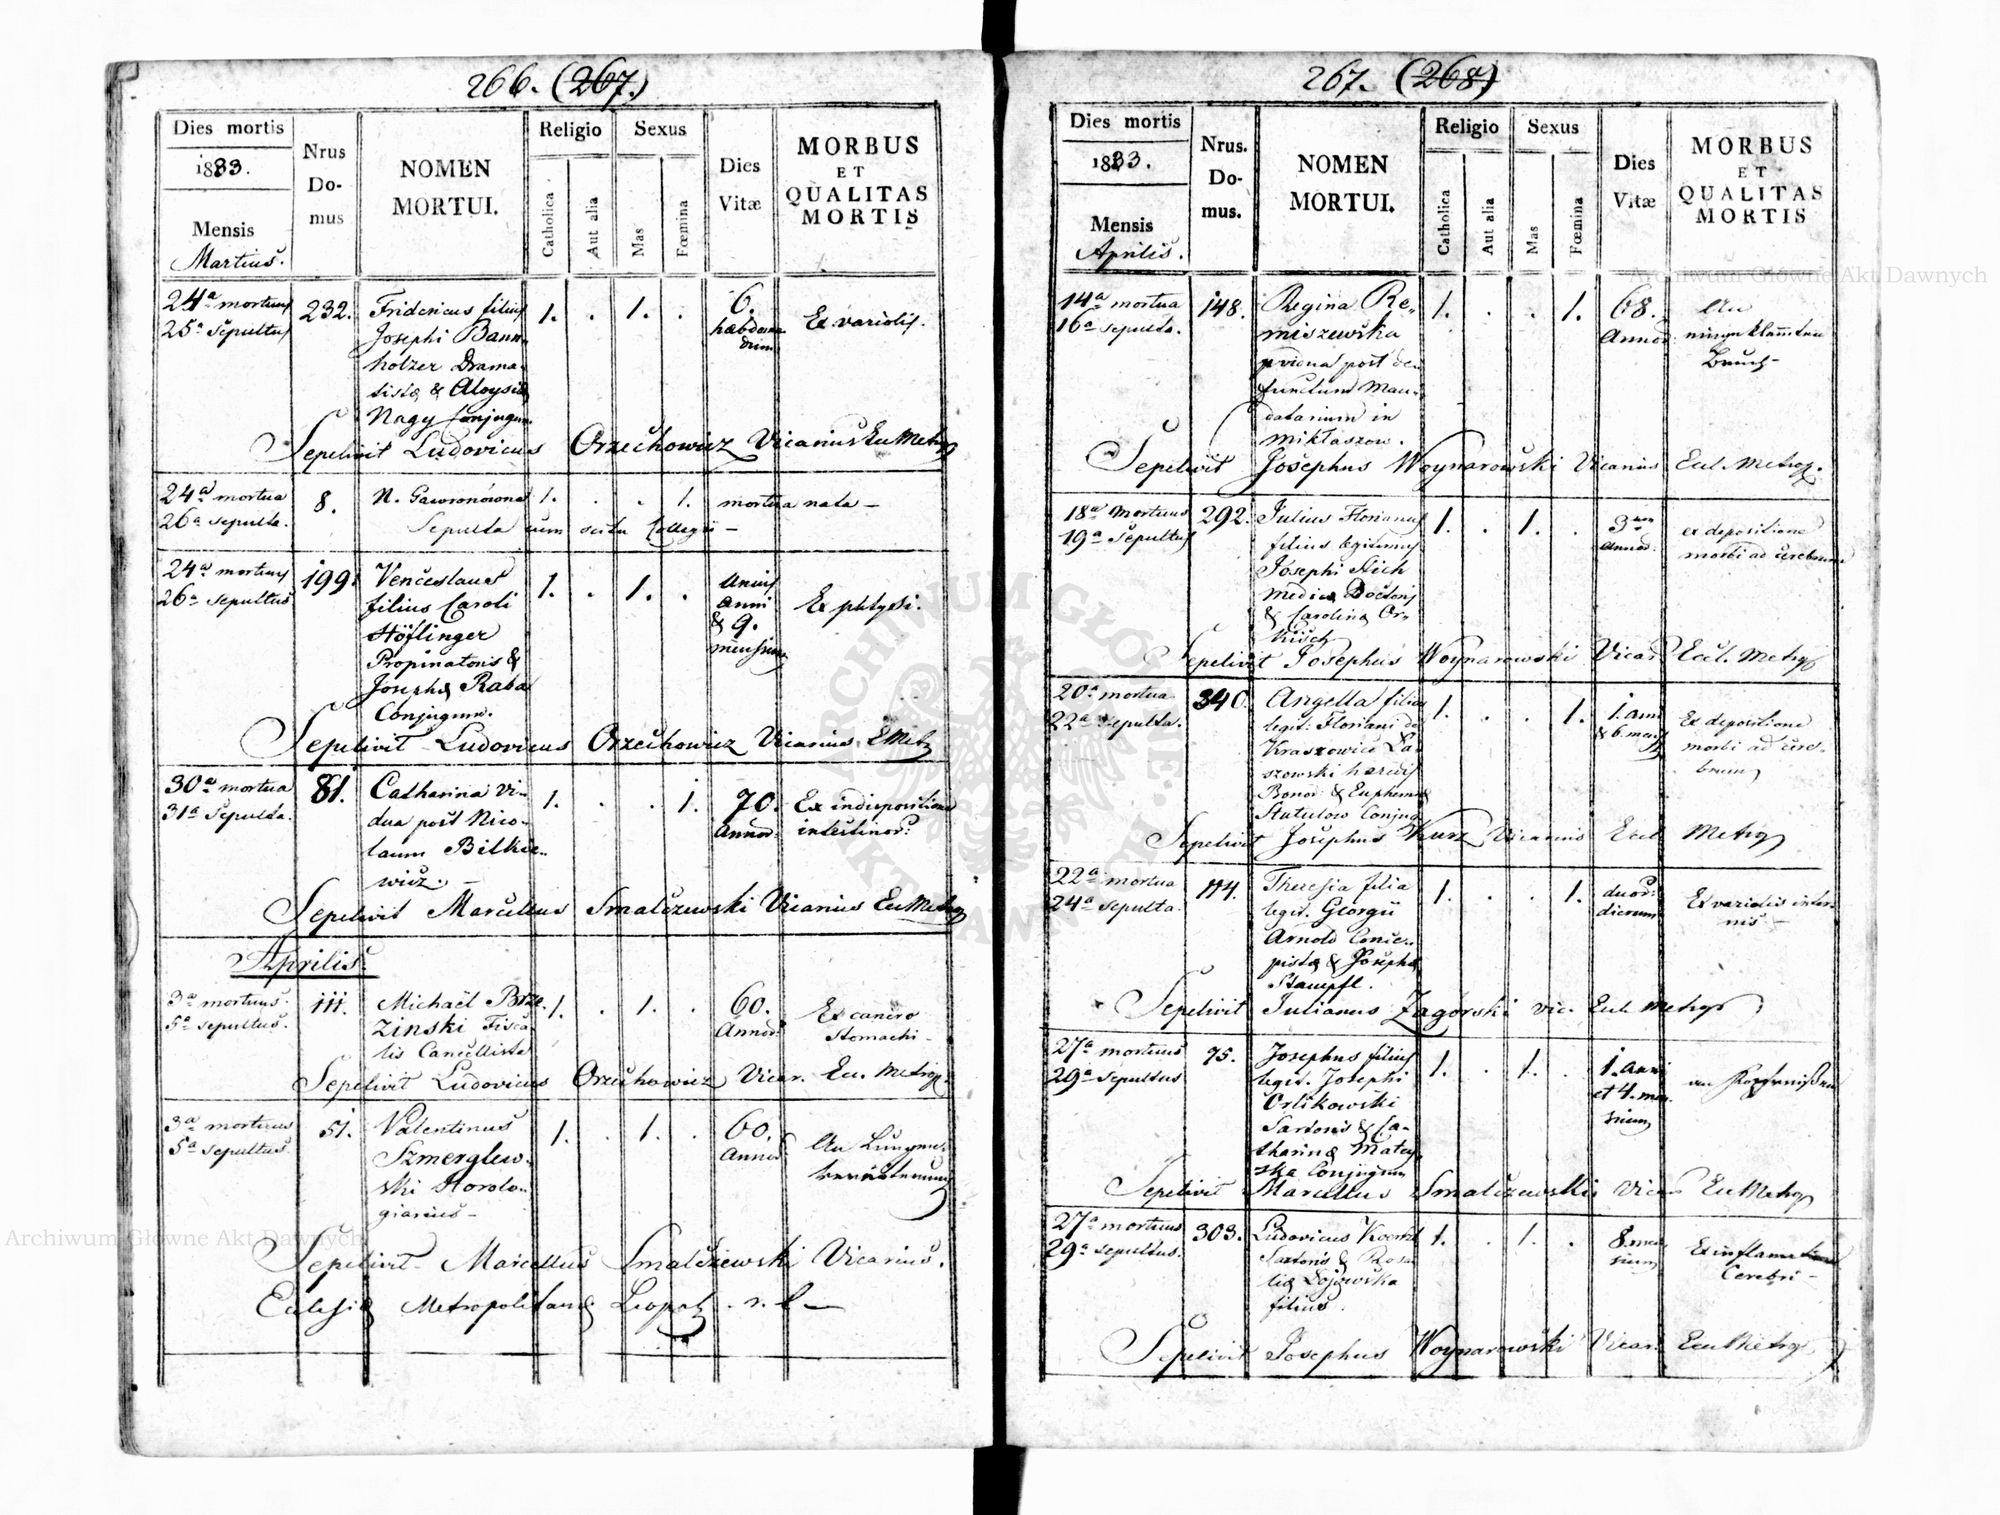 266. (267.)
Dies mortis
1833.
Mensis
Martius.
Nrus
Do-
mus
NOMEN
MORTUI.
Religio
Catholica
Aut alia
Sexus
Mas
Fœmina
Dies
Vitæ
MORBUS
ET
QUALITAS
MORTIS
24a mortuus 232. Fridericus filius 1. . 1. . 6. Ex variolis.
25a Sepultus Josephi Bann- hebdoma-
holzer Drama- drum
tistæ & Aloysiæ
Nagy Conjugum
Sepelivit Ludovicus Orzechowicz Vicarius Ecc Metrop
24a mortua 8. N. Gawronówna 1. . . 1. mortua nata –
26a sepulta. Sepulta cum scitu Collegii –
24a mortuus 199. Venceslaus 1. . 1. . unius Ex phtysi.
26a sepultus filius Caroli anni
Höflinger & 9.
Propinatoris & mensium
Josephæ Raba
Conjugum.
Sepelivit Ludovicus Orzechowicz Vicarius E Met
30a mortua 81. Catharina Vi- 1. . . 1. 70. Ex indispositione
31a Sepulta. dua post Nico- Annor: intestinor:
laum Bilkie-
wicz. –
Sepelivit Marcellus Smalczewski Vicarius Ecc Metrop
Aprilis.
3a mortuus. 111. Michaël Brze- 1. . 1. . 60. Ex cancro
5a sepultus. zinski Fisca- Annor: Stomachi –
lis Cancellista
Sepelivit Ludovicus Orzechowicz Vicar. Ecc. Metrop.
3a mortuus 51. Valentinus 1. . 1. . 60. An Lungen-
5a sepultus. Szmerglew- Annor
ski Horolo-
giarius –
Sepelivit Marcellus Smalczewski Vicarius.
Ecclesiæ Metropolitanæ Leopol. r. l –
267. (268)
Dies mortis
1833.
Mensis
Aprilis.
Nrus.
Do-
mus.
NOMEN
MORTUI.
Religio
Catholica
Aut alia
Sexus
Mas
Fœmina
Dies
Vitæ
MORBUS
ET
QUALITAS
MORTIS
14a mortua 148. Regina Re- 1. . . 1. 68. An
16a sepulta. miszewska Annor
vidua post de-
functum Man-
datarium in
Mikłaszow.
Sepelivit Josephus Woynarowski Vicarius Eccl. Metrop.
18a Mortuus 292. Julius Florianus 1. . 1. . 3um ex depositione
19a Sepultus filius legitimus Annor: morbi ad cerebrum
Josephi
Medici Doctoris
& Carolinæ
Sepelivit Josephus Woynarowski Vicar Eccl. Metrop
20a mortua 340. Angella filia 1. . . 1. 1. ann Ex depositione
22a sepulta. legit: Floriani de & 6. mens morbi ad cere-
Kraszowice Ła- brum
szowski hæredis
Bonor: & Euphemiæ
Sepelivit Josephus Kurz Vicarius Eccl Metrop
22a mortua 114. Theresia filia 1. . . 1. duor: Ex variolis inter-
24a sepulta. legit. Georgii dierum nis –
Arnold Conce-
pistæ & Josephæ
Stampfl.
Sepelivit Julianus Zagorski vic. Eccl Metrop
27a mortuus 75. Josephus filius 1. . 1. . 1. anni
29a sepultus legit. Josephi et 4. men-
Orlikowski sium
Sartoris & Ca-
tharinæ Matey-
ska Conjugum
Sepelivit Marcellus Smalczewski Vicar Ecc Metrop
27a mortuus 303. Ludovicus 1. . 1. . 8. men- Ex inflamatione
29a sepultus. Sartoris & Rosa- sium Cerebri –
liæ
filius.
Sepelivit Josephus Woynarowski Vicar. Eccl Metrop
Archiwum Główne Akt Dawnych
Archiwum Główne Akt Dawnych
ARCHIWUM GŁÓWNE AKT DAWNYCH